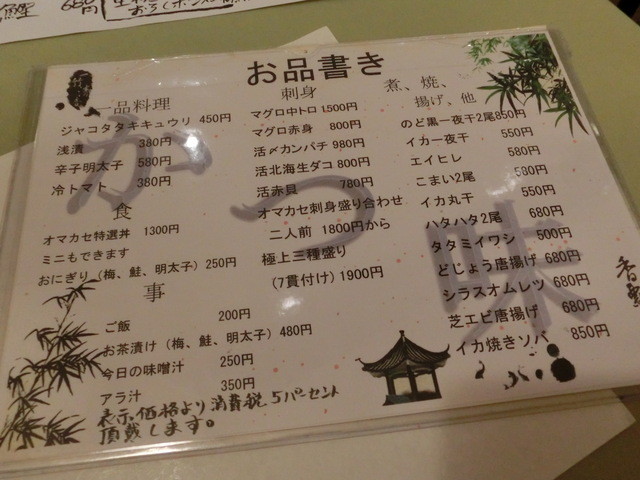 680円
お品書き
一品料理
ジャコタタキキュウリ 450円
浅漬 380円
辛子明太子 580円
冷トマト 380円
食
オマカセ特選丼 1300円
ミニもできます
おにぎり（梅、鮭、明太子）250円
事
ご飯 200円
お茶漬け（梅、鮭、明太子）480円
今日の味噌汁 250円
アラ汁 350円
表示価格より消費税5パーセント
頂戴します。
刺身
マグロ中トロ 1,500円
マグロ赤身 800円
活〆カンパチ 980円
活北海生ダコ 800円
活赤貝 780円
オマカセ刺身盛り合わせ
二人前 1800円から
極上三種盛り
(7貫付け) 1900円
煮、焼、
揚げ、他
のど黒一夜干2尾850円
イカ一夜干 550円
エイヒレ 580円
こまい2尾 580円
イカ丸干 550円
ハタハタ2尾 680円
タタミイワシ 500円
どじょう唐揚げ 680円
シラスオムレツ 680円
芝エビ唐揚げ 680円
イカ焼きソバ 850円
かつ味